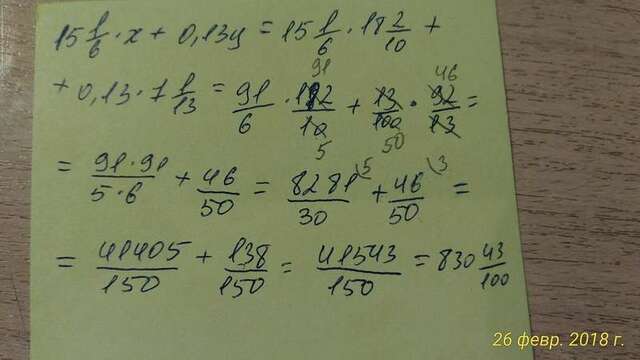 15 1/6 · x + 0,13y = 15 1/6 · 18 2/10 +
91 46
+ 0,13 · 7 1/13 = 91/6 · 182/10 + 13/100 · 92/13 =
5 50
= 91·91/5·6 + 46/50 = 8281/30 \5 + 46/50 \3 =
= 41405/150 + 138/150 = 41543/150 = 830 43/100
26 февр. 2018 г.